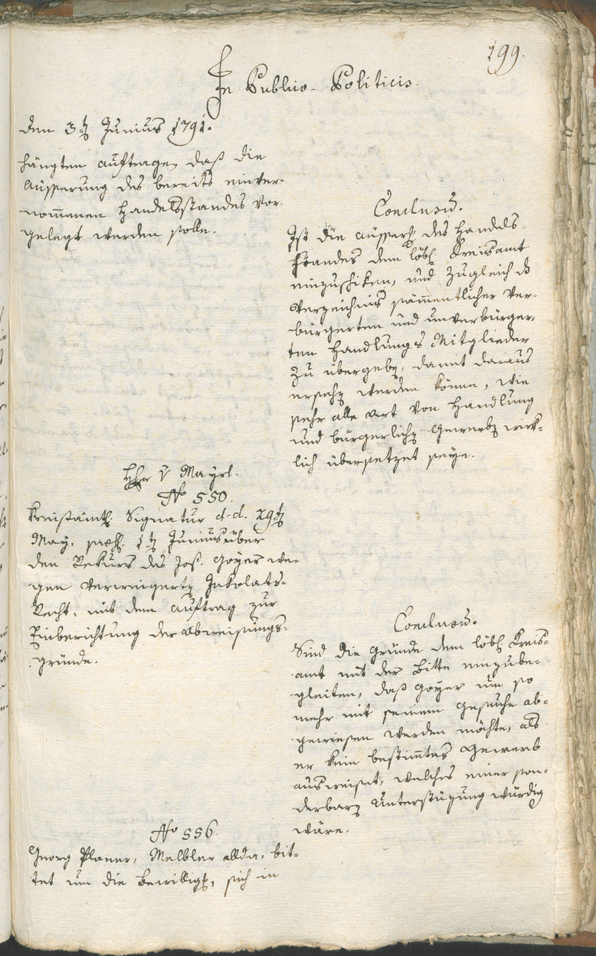 199.
In Publico-Politicis.
den 3t Junius 1791.
hängten auftragen, daß die
Äusserung des bereits einver-
nommenen Handelsstandes vor-
gelegt werden solle.
Conclusum.
Ist die äusserung des Handels-
standes dem löbl. Kreisamt
einzuschiken, und zugleich das
Verzeichnis sämmentlicher Ver-
bürgerten und unverbürger-
ten Handlungs Mitglieder
zu übergeben, damit daraus
ersehen werden könne, wie
sehr alle Art von Handlung
und bürgerlichen Gewerben wirk-
lich übersetzet seye.
v Mayrl.
No 550.
Kreisämtl. Signatur d. d. 29t
May, praes. 1t Junius über
den Rekurs des Jos. Goyer we-
gen verweigerten Inkolats-
Recht, mit dem Auftrag zur
Einberichtung der Abweisungs-
gründe.
Conclusum.
Sind die Gründe dem löbl. Kreis-
amt mit der Bitte einzube-
gleiten, daß Goyer um so
mehr mit seinem Gesuche ab-
gewiesen werden möchte, als
er kein bestimmtes Gewerb
ausweiset, welches einer son-
derbaren Unterstützung würdig
wäre.
No 556.
Georg Planer, Melbler allda, bit-
tet um die Bewilligung, sich in